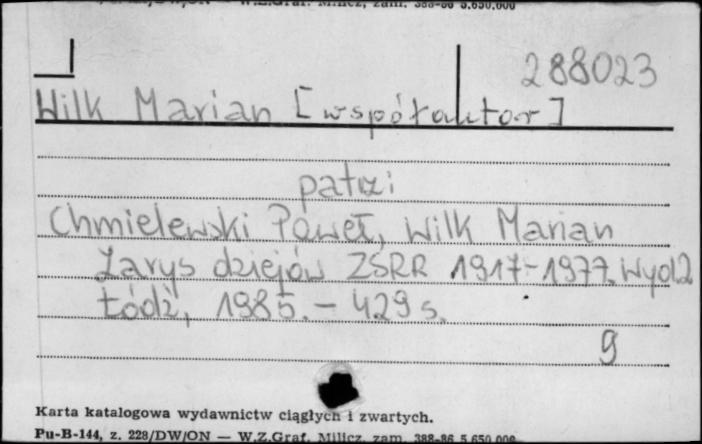 W.Z.Graf. Milicz, zam. 388-86 5.650.000
288023
Wilk Marian [współautor]
patrz:
Chmielewski Paweł, Wilk Marian
Zarys dziejów ZSRR 1917-1977. Wyd 2
Łódź, 1985. - 429 s.
9
Karta katalogowa wydawnictw ciągłych i zwartych.
Pu-B-144, z. 228/DW/ON — W.Z.Graf. Milicz, zam. 388-86 5.650.000